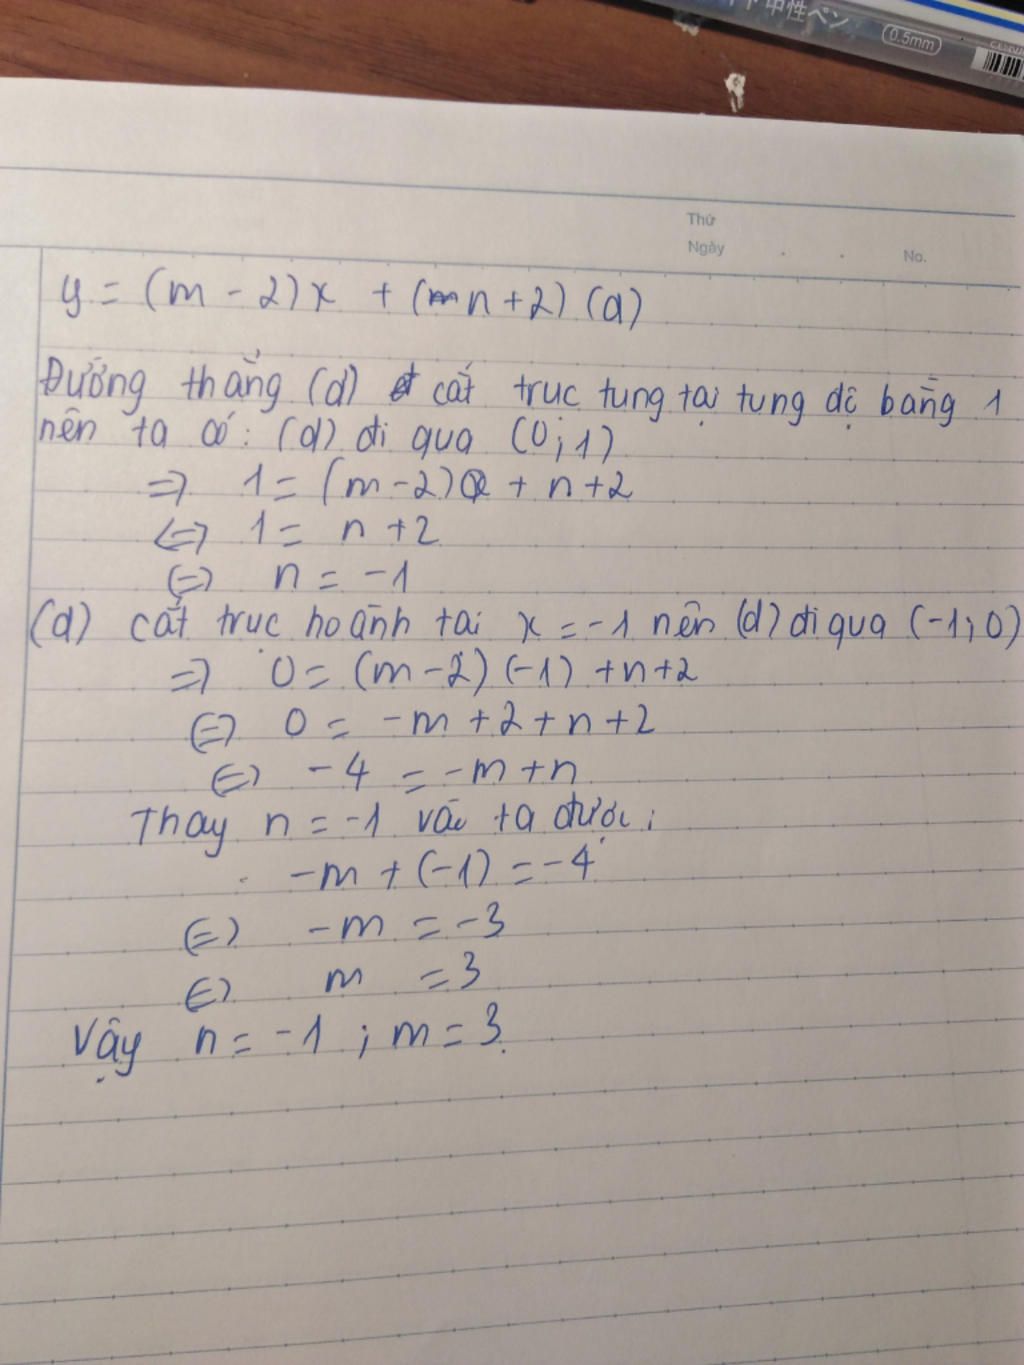 中性ペン
0.5mm
Thứ
Ngày . . No.
y = (m - 2)x + (n + 2) (d)
Đường thẳng (d) cắt trục tung tại tung độ bằng 1
nên ta có: (d) đi qua (0;1)
=> 1 = (m-2)0 + n+2
<=> 1 = n+2
(=) n = -1
(d) cắt trục hoành tại x = -1 nên (d) đi qua (-1;0)
=> 0 = (m-2) (-1) + n+2
(=) 0 = -m + 2 + n + 2
(=) -4 = -m + n
Thay n = -1 vào ta được:
-m + (-1) = -4
(=) -m = -3
(=) m = 3
Vậy n = -1 ; m = 3.